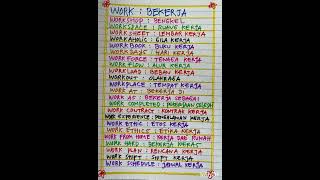 WORK : BEKERJA
WORKSHOP : BENGKEL
WORKSPACE : RUANG KERJA
WORKSHEET : LEMBAR KERJA
WORKAHOLIC : GILA KERJA
WORKBOOK : BUKU KERJA
WORKDAYS : HARI KERJA
WORKFORCE : TENAGA KERJA
WORKFLOW : ALUR KERJA
WORKLOAD : BEBAN KERJA
WORKOUT : OLAHRAGA
WORKPLACE : TEMPAT KERJA
WORK AT : BEKERJA DI
WORK AS : BEKERJA SEBAGAI
WORK COMPLETED : PEKERJAAN SELESAI
WORK CONTRACT : KONTRAK KERJA
WORK EXPERIENCE : PENGALAMAN KERJA
WORK ETHIC : ETOS KERJA
WORK ETHICS : ETIKA KERJA
WORK FROM HOME : KERJA DARI RUMAH
WORK HARD : BEKERJA KERAS
WORK PLAN : RENCANA KERJA
WORK SHIFT : SHIFT KERJA
WORK SCHEDULE : JADWAL KERJA